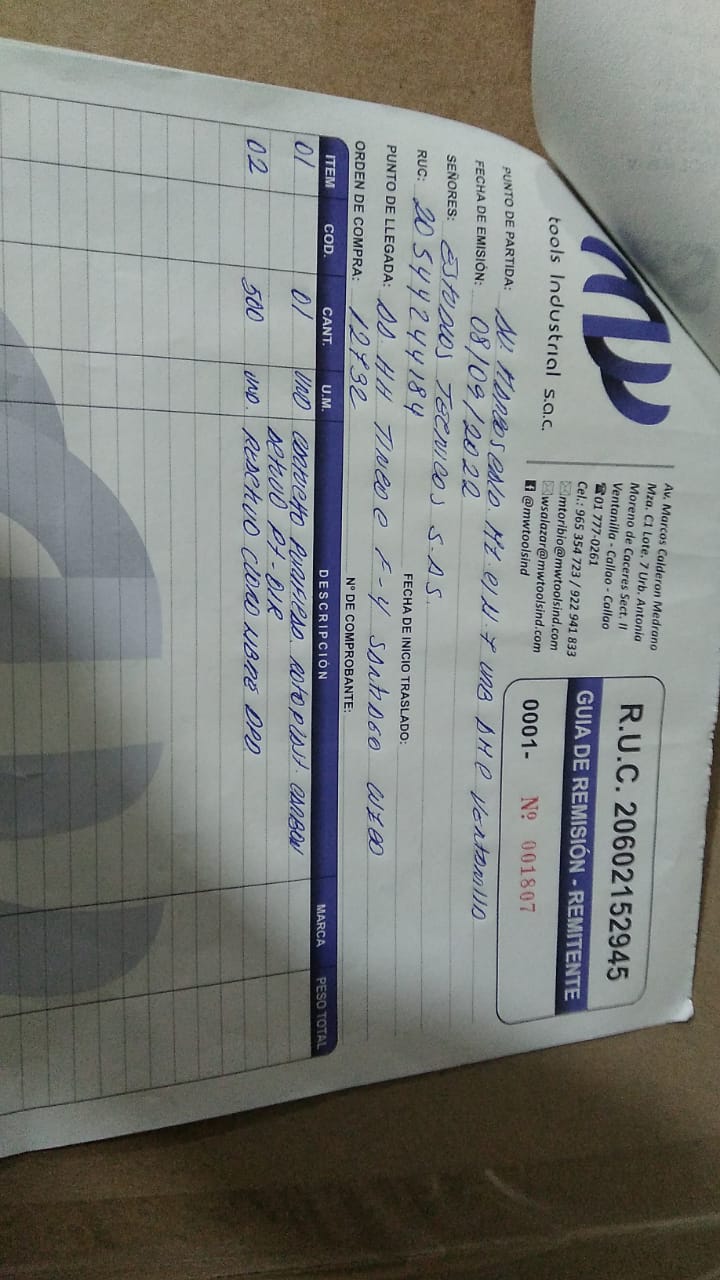 tools Industrial s.a.c.
Av. Marcos Calderon Medrano
Mza. C1 Lote. 7 Urb. Antonia
Moreno de Caceres Sect. II
Ventanilla - Callao - Callao
☎01 777-0261
Cel.: 965 354 723 / 922 941 933
mtoribio@mwtoolsind.com
wsalazar@mwtoolsind.com
@mwtoolsind
R.U.C. 20602152945
GUIA DE REMISIÓN - REMITENTE
0001- Nº 001807
PUNTO DE PARTIDA: AV. MZ
FECHA DE EMISIÓN: 08/09/2022
SEÑORES: ESTUDIOS TECNICOS S.A.S.
RUC: 20544244184 FECHA DE INICIO TRASLADO:
PUNTO DE LLEGADA: AA HH TINCOC F-4 SANTIAGO
ORDEN DE COMPRA: 12792 Nº DE COMPROBANTE:
ITEM COD. CANT. U.M. DESCRIPCIÓN MARCA PESO TOTAL
01 01 UND CARBON
02 500 UND. REACTIVO CLORO LIBRE DPD